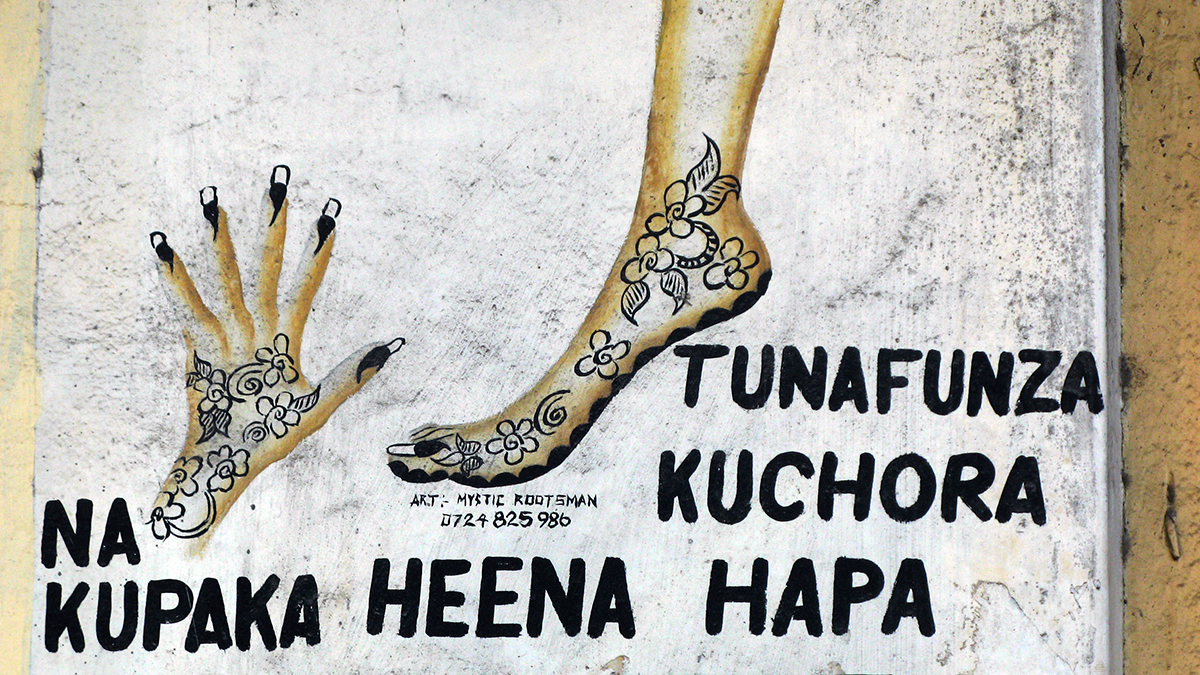 TUNAFUNZA
KUCHORA
ART:- MYSTIC ROOTSMAN
0724 825 986
NA
KUPAKA HEENA HAPA